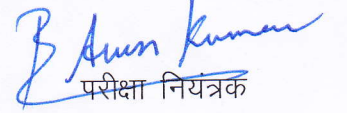 B Arun Kumar
परीक्षा नियंत्रक